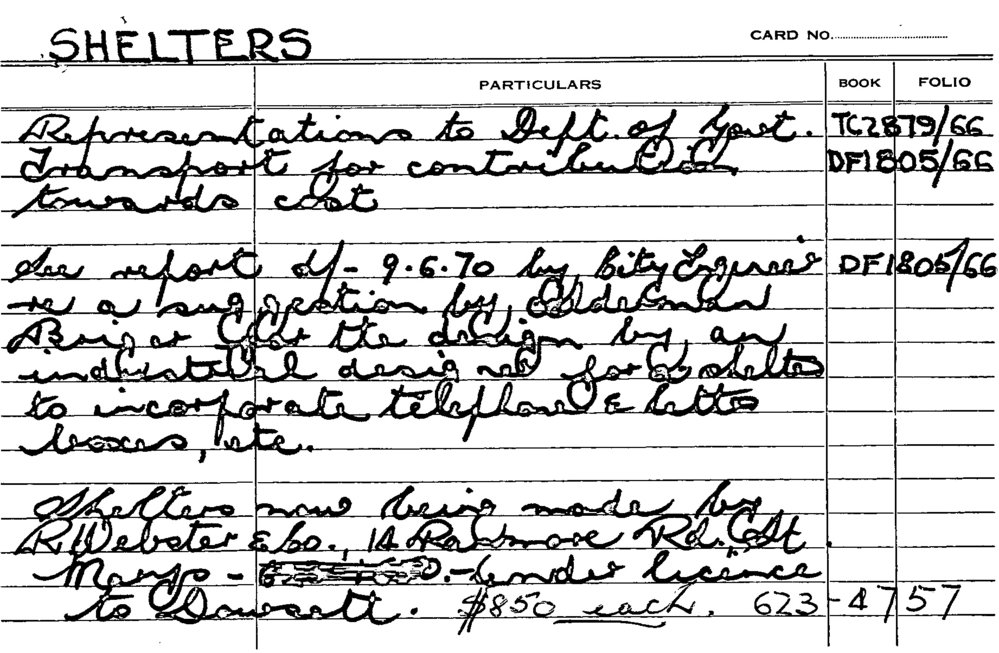 SHELTERS CARD NO.
PARTICULARS BOOK FOLIO
Representations to Dept. of Govt. TC2879/66
Transport for contribution DF1805/66
towards cost
See report d/- 9.6.70 by City Engineer DF1805/66
re a suggestion by Alderman
Briger for the design by an
industrial designer for a shelter
to incorporate telephone & letter
boxes, etc.
Shelters now being made by
R. Webster & Co., 14 Rd. St.
Marys - - under licence
to Dowsett. $850 each. 623-4757